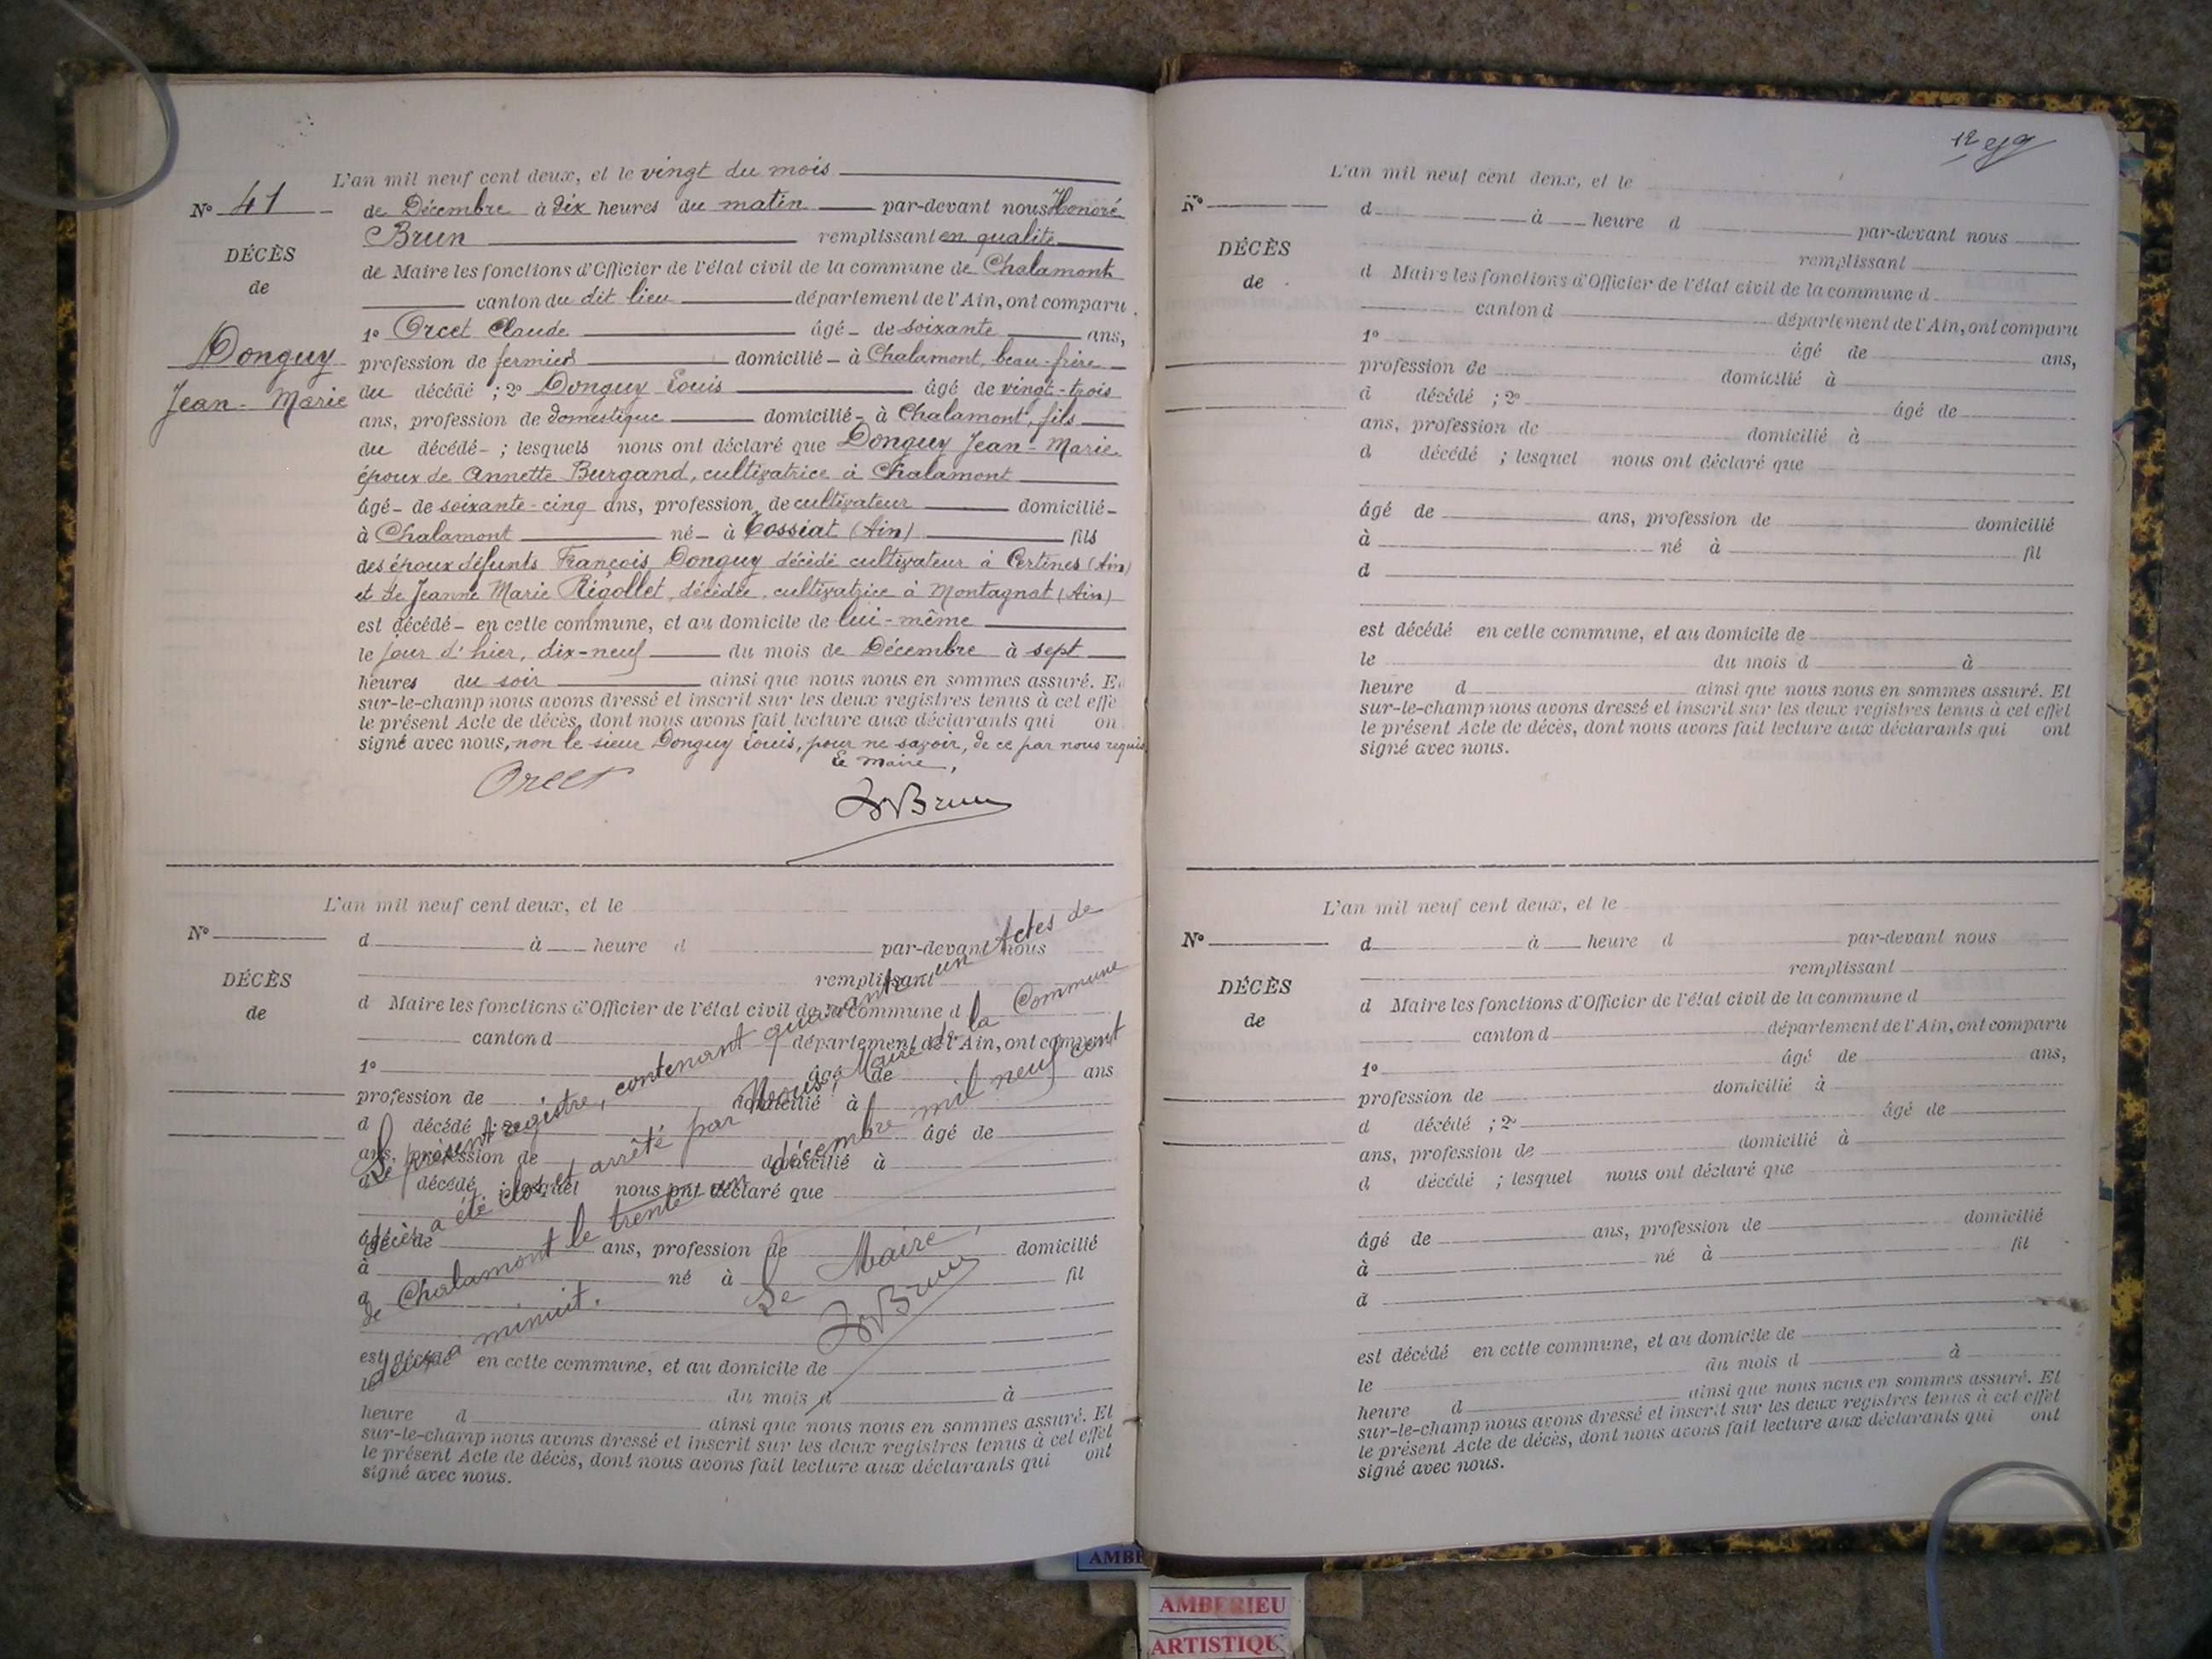 L'an mil neuf cent deux, et le vingt du mois
N° 41
de Décembre à dix heures du matin par-devant nous Honoré
Brun remplissant en qualité
DÉCÈS
de Maire les fonctions d'Officier de l'état civil de la commune de Chalamont
de
canton du dit lieu département de l'Ain, ont comparu
1° Orcet Claude âgé de soixante ans,
Donguy
profession de fermier domicilié à Chalamont, beau-frère
Jean-Marie
du décédé ; 2° Donguy Louis âgé de vingt-trois
ans, profession de domestique domicilié à Chalamont, fils
du décédé ; lesquels nous ont déclaré que Donguy Jean-Marie
époux de Annette Burgand, cultivatrice à Chalamont
âgé de soixante-cinq ans, profession de cultivateur domicilié
à Chalamont né à Tossiat (Ain) fils
des époux défunts François Donguy décédé cultivateur à Certines (Ain)
et de Jeanne Marie Rigollet, décédée, cultivatrice à Montagnat (Ain)
est décédé en cette commune, et au domicile de lui-même
le jour d'hier, dix-neuf du mois de Décembre à sept
heures du soir ainsi que nous nous en sommes assuré. E
sur-le-champ nous avons dressé et inscrit sur les deux registres tenus à cet effe
le présent Acte de décès, dont nous avons fait lecture aux déclarants qui on
signé avec nous, non le sieur Donguy Louis, pour ne savoir, de ce par nous requis
Le Maire,
Orcet
Brun
L'an mil neuf cent deux, et le
N°
d à heure d par-devant nous
remplissant
DÉCÈS
d Maire les fonctions d'Officier de l'état civil de la commune d
de
canton d département de l'Ain, ont comparu
1° âgé de ans
profession de domicilié à
d décédé ; 2° âgé de
ans, profession de domicilié à
d décédé ; lesquel nous ont déclaré que
âgé de ans, profession de domicilié
à né à fil
d
est décédé en cette commune, et au domicile de
le du mois d à
heure d ainsi que nous nous en sommes assuré. Et
sur-le-champ nous avons dressé et inscrit sur les deux registres tenus à cet effet
le présent Acte de décès, dont nous avons fait lecture aux déclarants qui ont
signé avec nous.
Le présent registre, contenant quarante un Actes de
décès a été clos et arrêté par Nous, Maire de la Commune
de Chalamont le trente un décembre mil neuf cent
deux à minuit.
Le Maire,
Brun
L'an mil neuf cent deux, et le
N°
d à heure d par-devant nous
DÉCÈS
remplissant
de
d Maire les fonctions d'Officier de l'état civil de la commune d
canton d département de l'Ain, ont comparu
1° âgé de ans,
profession de domicilié à
d décédé ; 2° âgé de
ans, profession de domicilié à
d décédé ; lesquel nous ont déclaré que
âgé de ans, profession de domicilié
à né à fil
d
est décédé en cette commune, et au domicile de
le du mois d à
heure d ainsi que nous nous en sommes assuré. Et
sur-le-champ nous avons dressé et inscrit sur les deux registres tenus à cet effet
le présent Acte de décès, dont nous avons fait lecture aux déclarants qui ont
signé avec nous.
L'an mil neuf cent deux, et le
N°
d à heure d par-devant nous
remplissant
DÉCÈS
d Maire les fonctions d'Officier de l'état civil de la commune d
de
canton d département de l'Ain, ont comparu
1° âgé de ans,
profession de domicilié à
d décédé ; 2° âgé de
ans, profession de domicilié à
d décédé ; lesquel nous ont déclaré que
âgé de ans, profession de domicilié
à né à fil
d
est décédé en cette commune, et au domicile de
le du mois d à
heure d ainsi que nous nous en sommes assuré. Et
sur-le-champ nous avons dressé et inscrit sur les deux registres tenus à cet effet
le présent Acte de décès, dont nous avons fait lecture aux déclarants qui ont
signé avec nous.
AMBE
AMBERIEU
ARTISTIQU